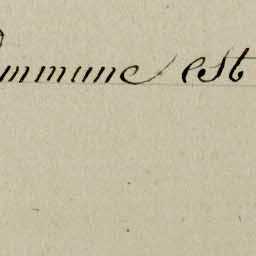 ommune est